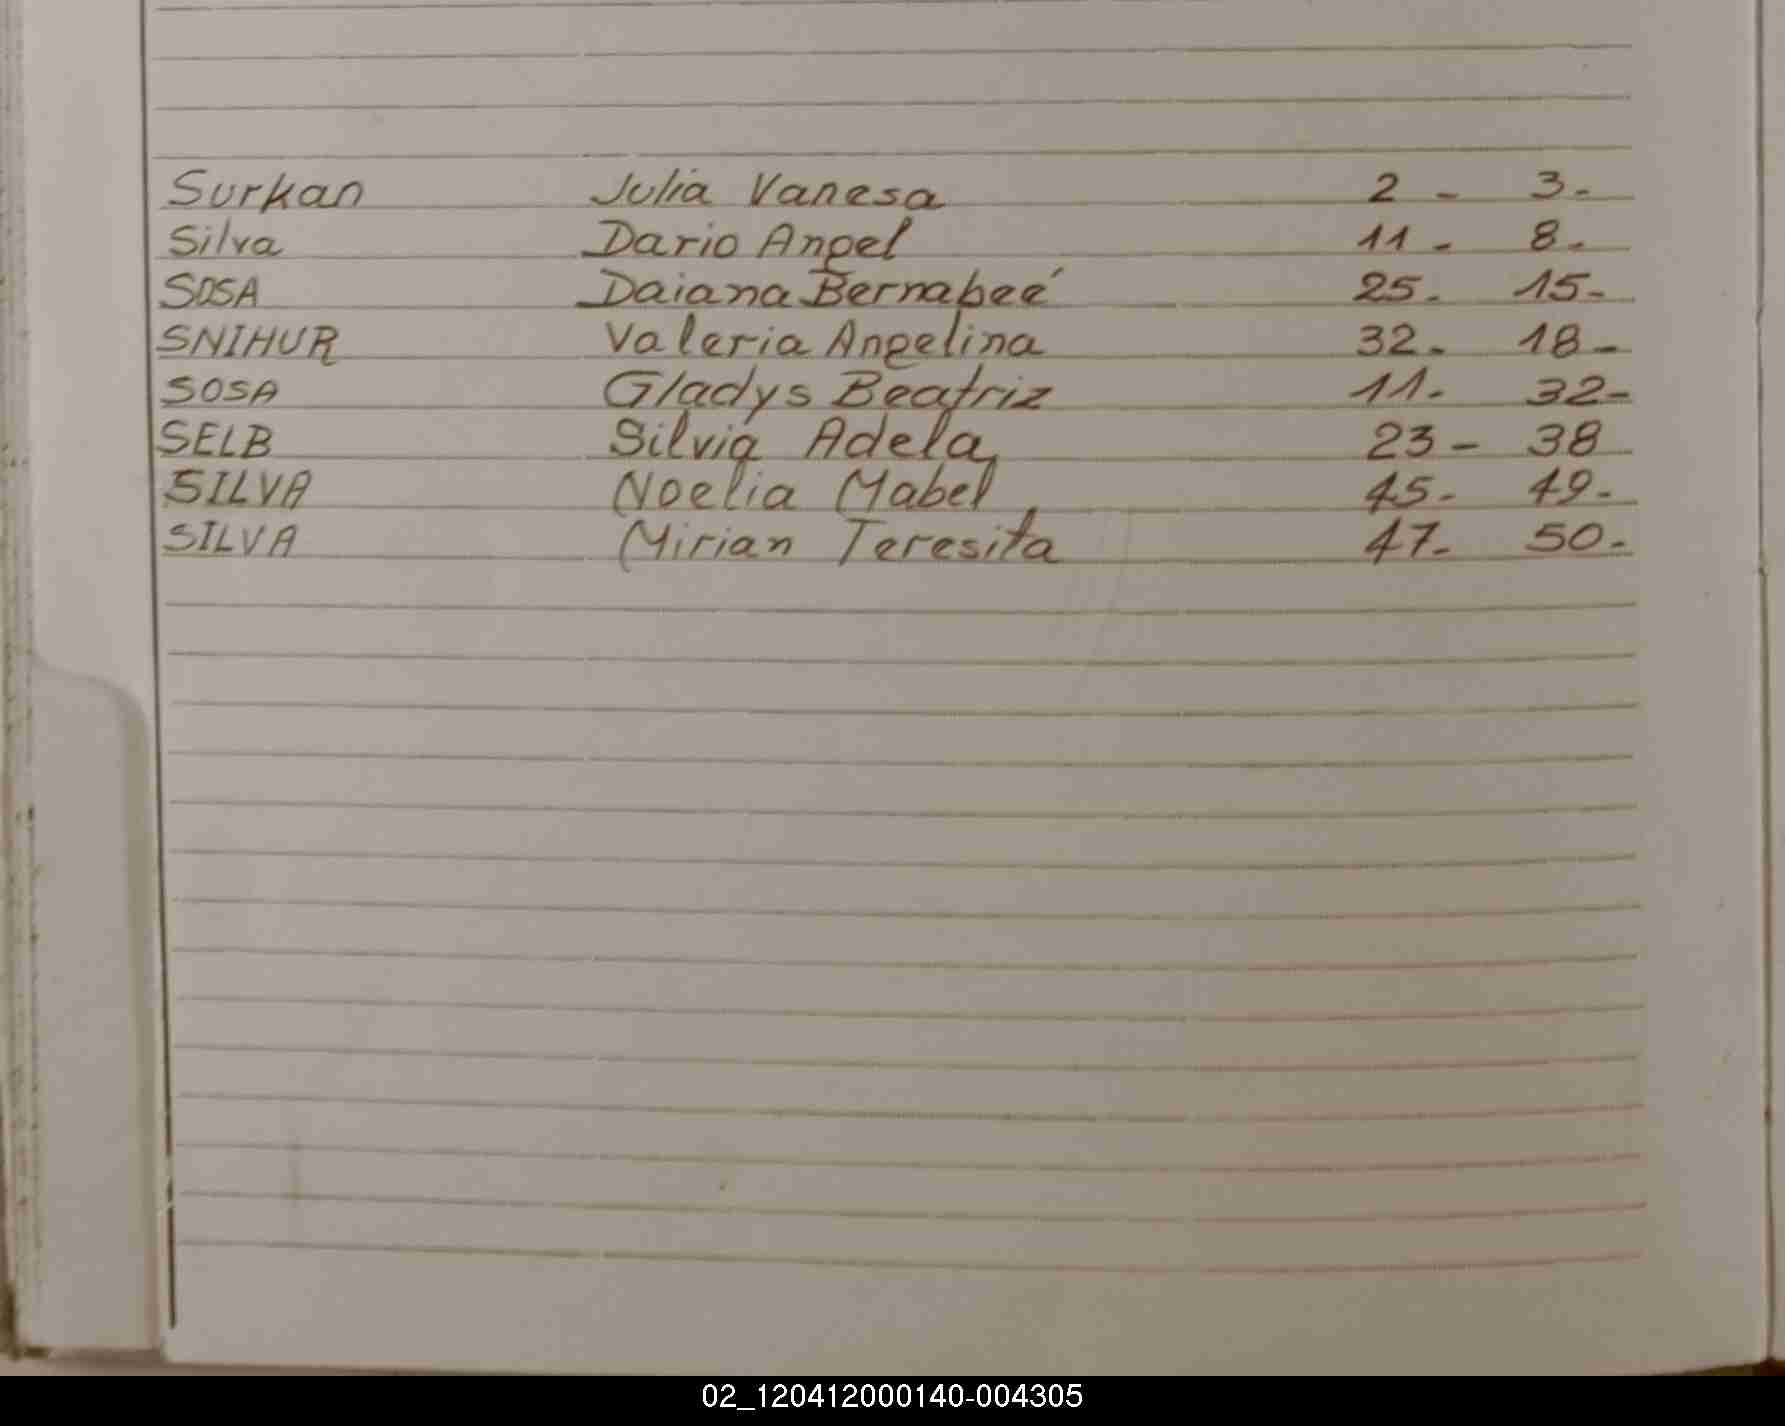 Surkan Julia Vanesa 2 - 3-
Silva Dario Angel 11 - 8-
SOSA Daiana Bernabeé 25- 15-
SNIHUR Valeria Angelina 32- 18-
SOSA Gladys Beatriz 11- 32-
SELB Silvia Adela 23- 38
SILVA Noelia Mabel 45- 49-
SILVA Mirian Teresita 47- 50-
02_120412000140-004305